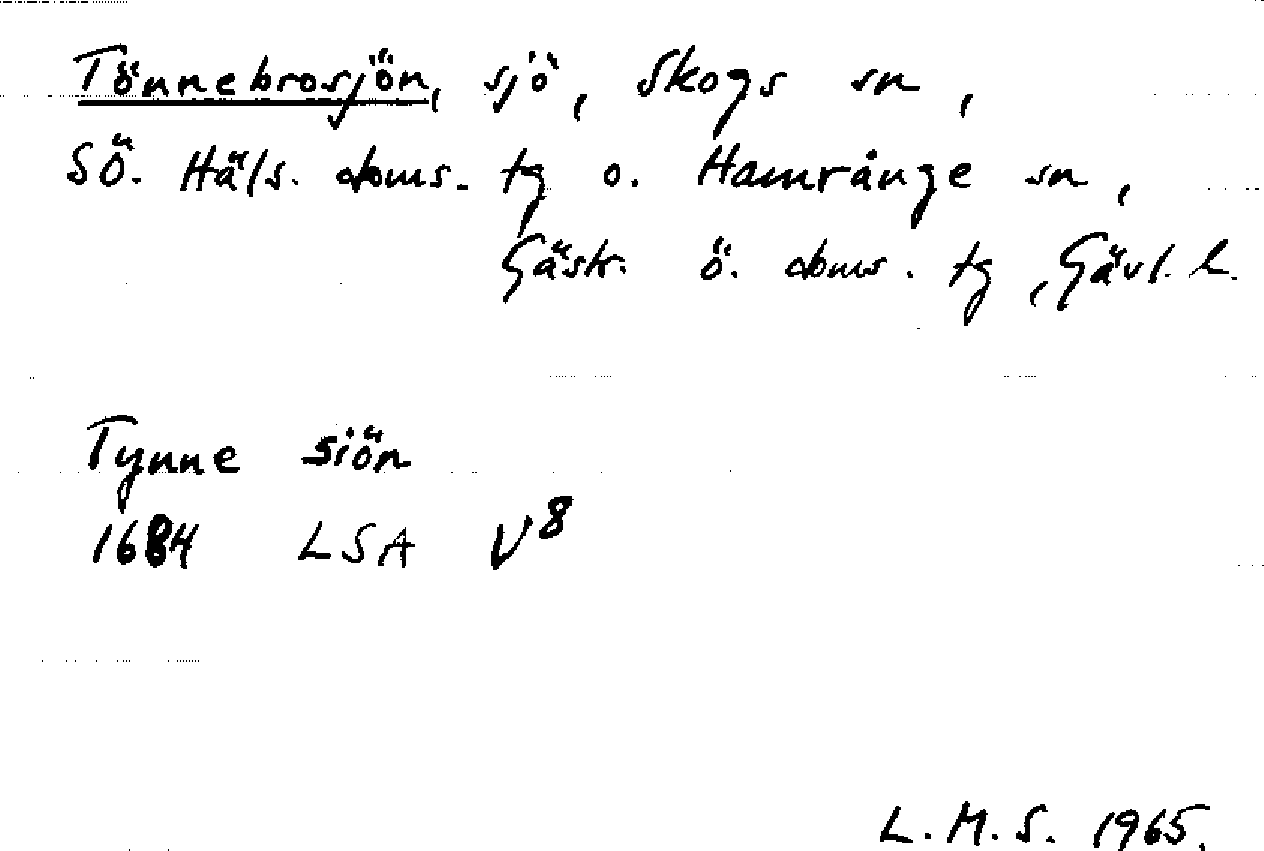 Tönnebrosjön, sjö, Skogs sn,
SÖ. Häls. doms. tg o. Hamrånge sn,
Gäsk. ö. doms. tg, Gävl. l.
Tynne siön
1684 LSA V8
L.M.S. 1965.